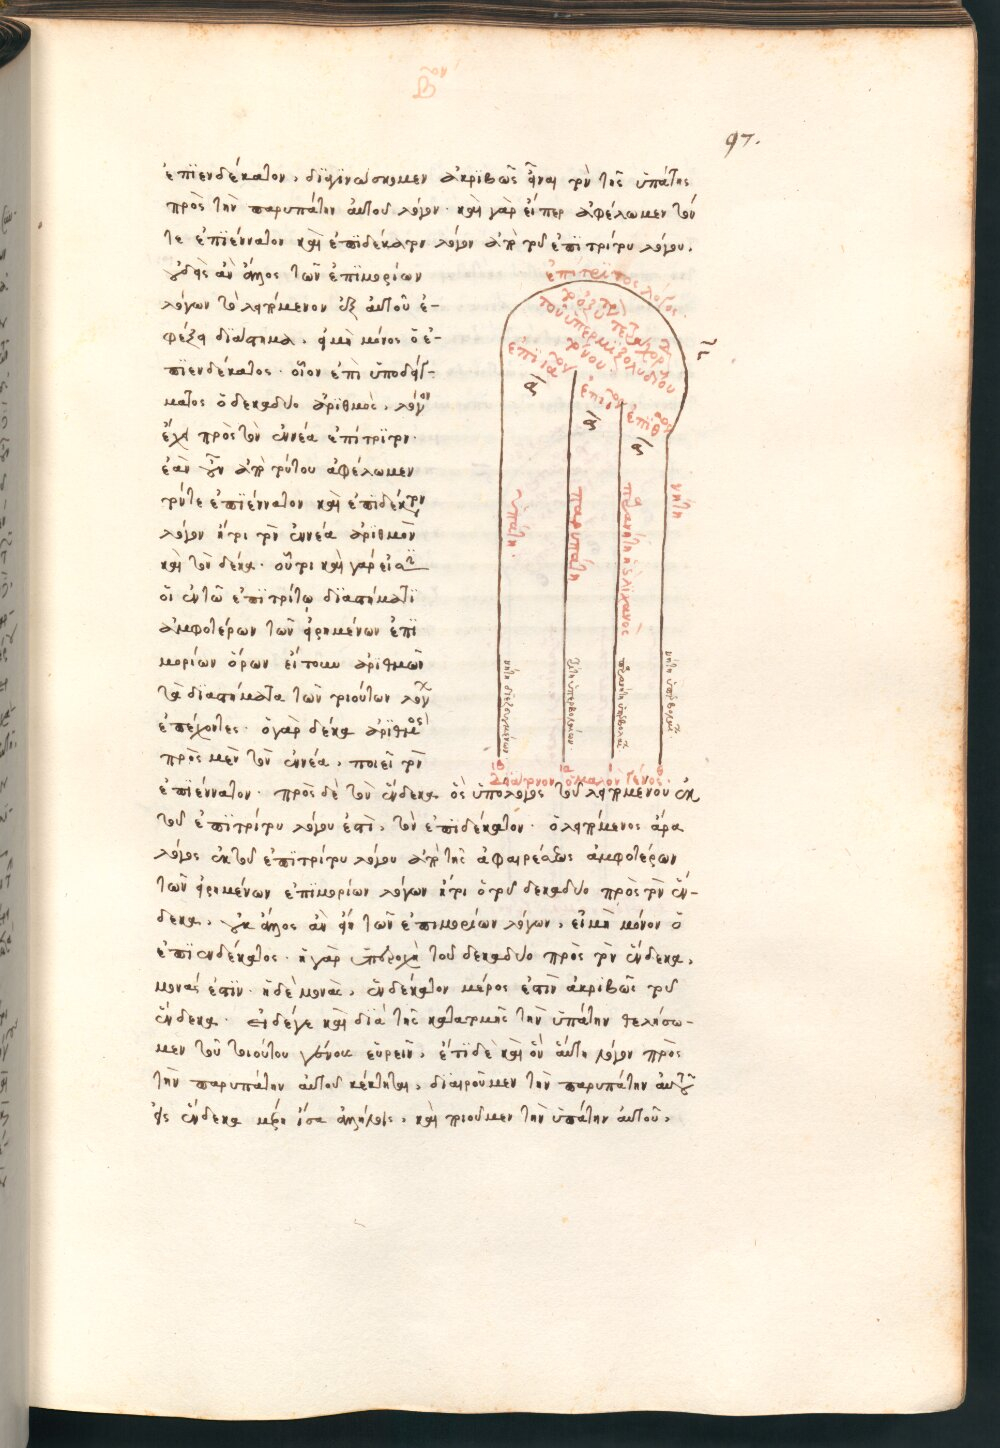 97.
ἐπιενδέκατον, διαγινώσκομεν ἀκριβῶς εἶναι τὸν τῆς ὑπάτης
πρὸς τὴν παρυπάτην αὐτοῦ λόγον· καὶ γὰρ εἴπερ ἀφέλωμεν τόν
τε ἐπιέννατον καὶ ἐπιδέκατον λόγον ἀπὸ τοῦ ἐπιτρίτου λόγου,
οὐδεὶς ἂν ἄλλος τῶν ἐπιμορίων
λόγων τὸ λειπόμενον ἐξ αὐτοῦ ἐ-
φέξει διάστημα, εἰ μὴ μόνος ὁ ἐ-
πιενδέκατος· οἷον ἐπὶ ὑποδείγ-
ματος ὁ δεκαδύο ἀριθμὸς, λόγον
ἔχει πρὸς τὸν ἐννέα ἐπίτριτον·
ἐὰν οὖν ἀπὸ τούτου ἀφέλωμεν
τόν τε ἐπιέννατον καὶ ἐπιδέκατον
λόγον ἤτοι τὸν ἐννέα ἀριθμὸν
καὶ τὸν δέκα· οὗτοι καὶ γάρ εἰσι
οἱ ἐν τῶ ἐπιτρίτω διαστήματι
ἀμφοτέρων τῶν εἰρημένων ἐπι
μορίων ὅρων εἴτουν ἀριθμῶν
τὰ διαστήματα τῶν τοιούτων λόγων
ἐπέχοντες· ὁ γὰρ δέκα ἀριθμὸς
πρὸς μὲν τὸν ἐννέα, ποιεῖ τὸν
ἐπιέννατον· πρὸς δὲ τὸν ἕνδεκα ὃς ὑπόλογος τοῦ λειπομένου ἐκ
τοῦ ἐπιτρίτου λόγου ἐστὶ, τὸν ἐπιδέκατον· ὁ λειπόμενος ἄρα
λόγος ἐκ τοῦ ἐπιτρίτου λόγου ἀπὸ τῆς ἀφαιρέσεως ἀμφοτέρων
τῶν εἰρημένων ἐπιμορίων λόγων ἤτοι ὁ τοῦ δεκαδύο πρὸς τὸν ἕν-
δεκα, οὐκ ἄλλος ἂν εἴη τῶν ἐπιμορίων λόγων, εἰ μὴ μόνον ὁ
ἐπιενδέκατος· ἡ γὰρ ὑπεροχὴ τοῦ δεκαδύο πρὸς τὸν ἕνδεκα,
μονάς ἐστιν· ἡ δὲ μονὰς, ἑνδέκατον μέρος ἐστὶν ἀκριβῶς τοῦ
ἕνδεκα· εἰ δέ γε καὶ διὰ τῆς κατατομῆς τὴν ὑπάτην θελήσω-
μεν τοῦ τοιούτου γένους εὑρεῖν, ἔτι δὲ καὶ ὃν αὕτη λόγον πρὸς
τὴν παρυπάτην αὐτοῦ κέκτηται, διαιροῦμεν τὴν παρυπάτην αὐτοῦ
εἰς ἕνδεκα μέρη ἴσα ἀλλήλοις, καὶ ποιοῦμεν τὴν ὑπάτην αὐτοῦ,
ἐπίτριτος λόγος
τὸ ὀξὺ τετράχορδον
τοῦ ὑπερμιξολυδίου
τόνου·
ἐπὶ ιαον
ἐπὶ ιον
ἐπὶ θον
ὑπάτη·
παρυπάτη
παρανήτη ἢ λιχανός
νήτη
νήτη διεζευγμένων
τρίτη ὑπερβολαίων
παρανήτη ὑπερβολαίων
νήτη ὑπερβολαίων
ιβ ια ι θ
διάτονον ὁμαλὸν γένος